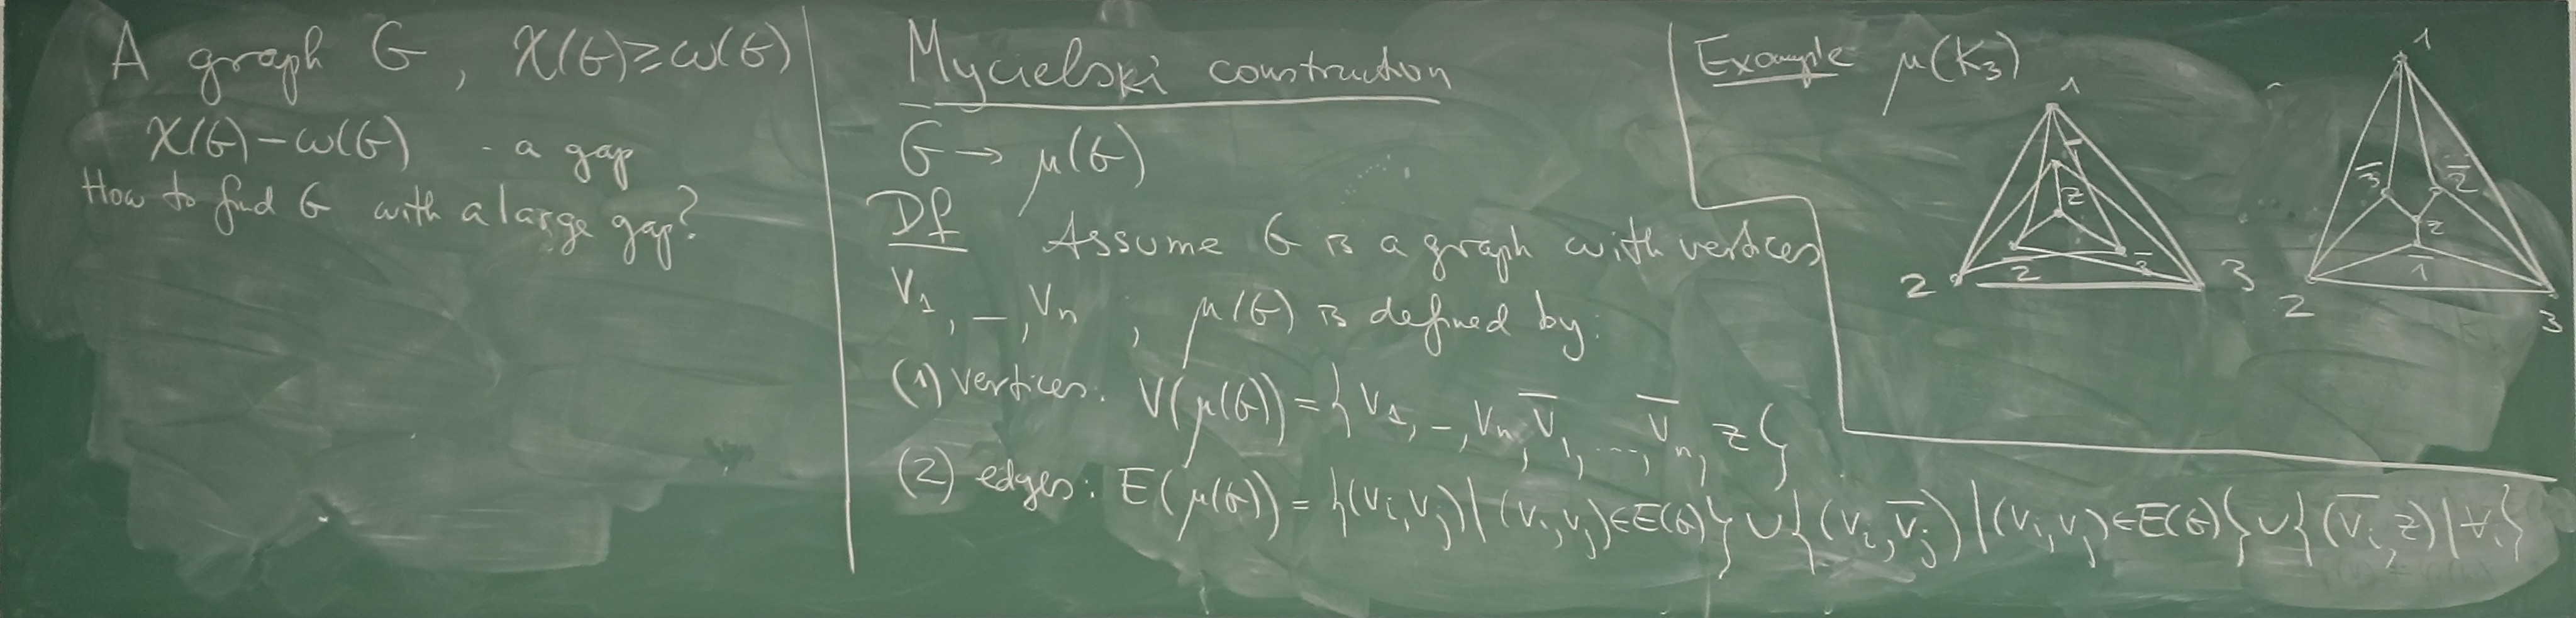 A graph G, χ(G)≥ω(G)
χ(G)-ω(G) - a gap
How to find G with a large gap?
Mycielski construction
G → μ(G)
Df Assume G is a graph with vertices
v₁,–,vₙ, μ(G) is defined by:
(1) vertices: V(μ(G)) = {v₁,–,vₙ, v̅₁,...,v̅ₙ, z}
(2) edges: E(μ(G)) = {(vᵢ,vⱼ)|(vᵢ,vⱼ)∈E(G)} ∪ {(vᵢ,v̅ⱼ)|(vᵢ,vⱼ)∈E(G)} ∪ {(v̅ᵢ,z)|∀ᵢ}
Example μ(K₃)
1
1̅
z
2 2̅ 3̅ 3
1
3̅ 2̅
z
1̅
2 3